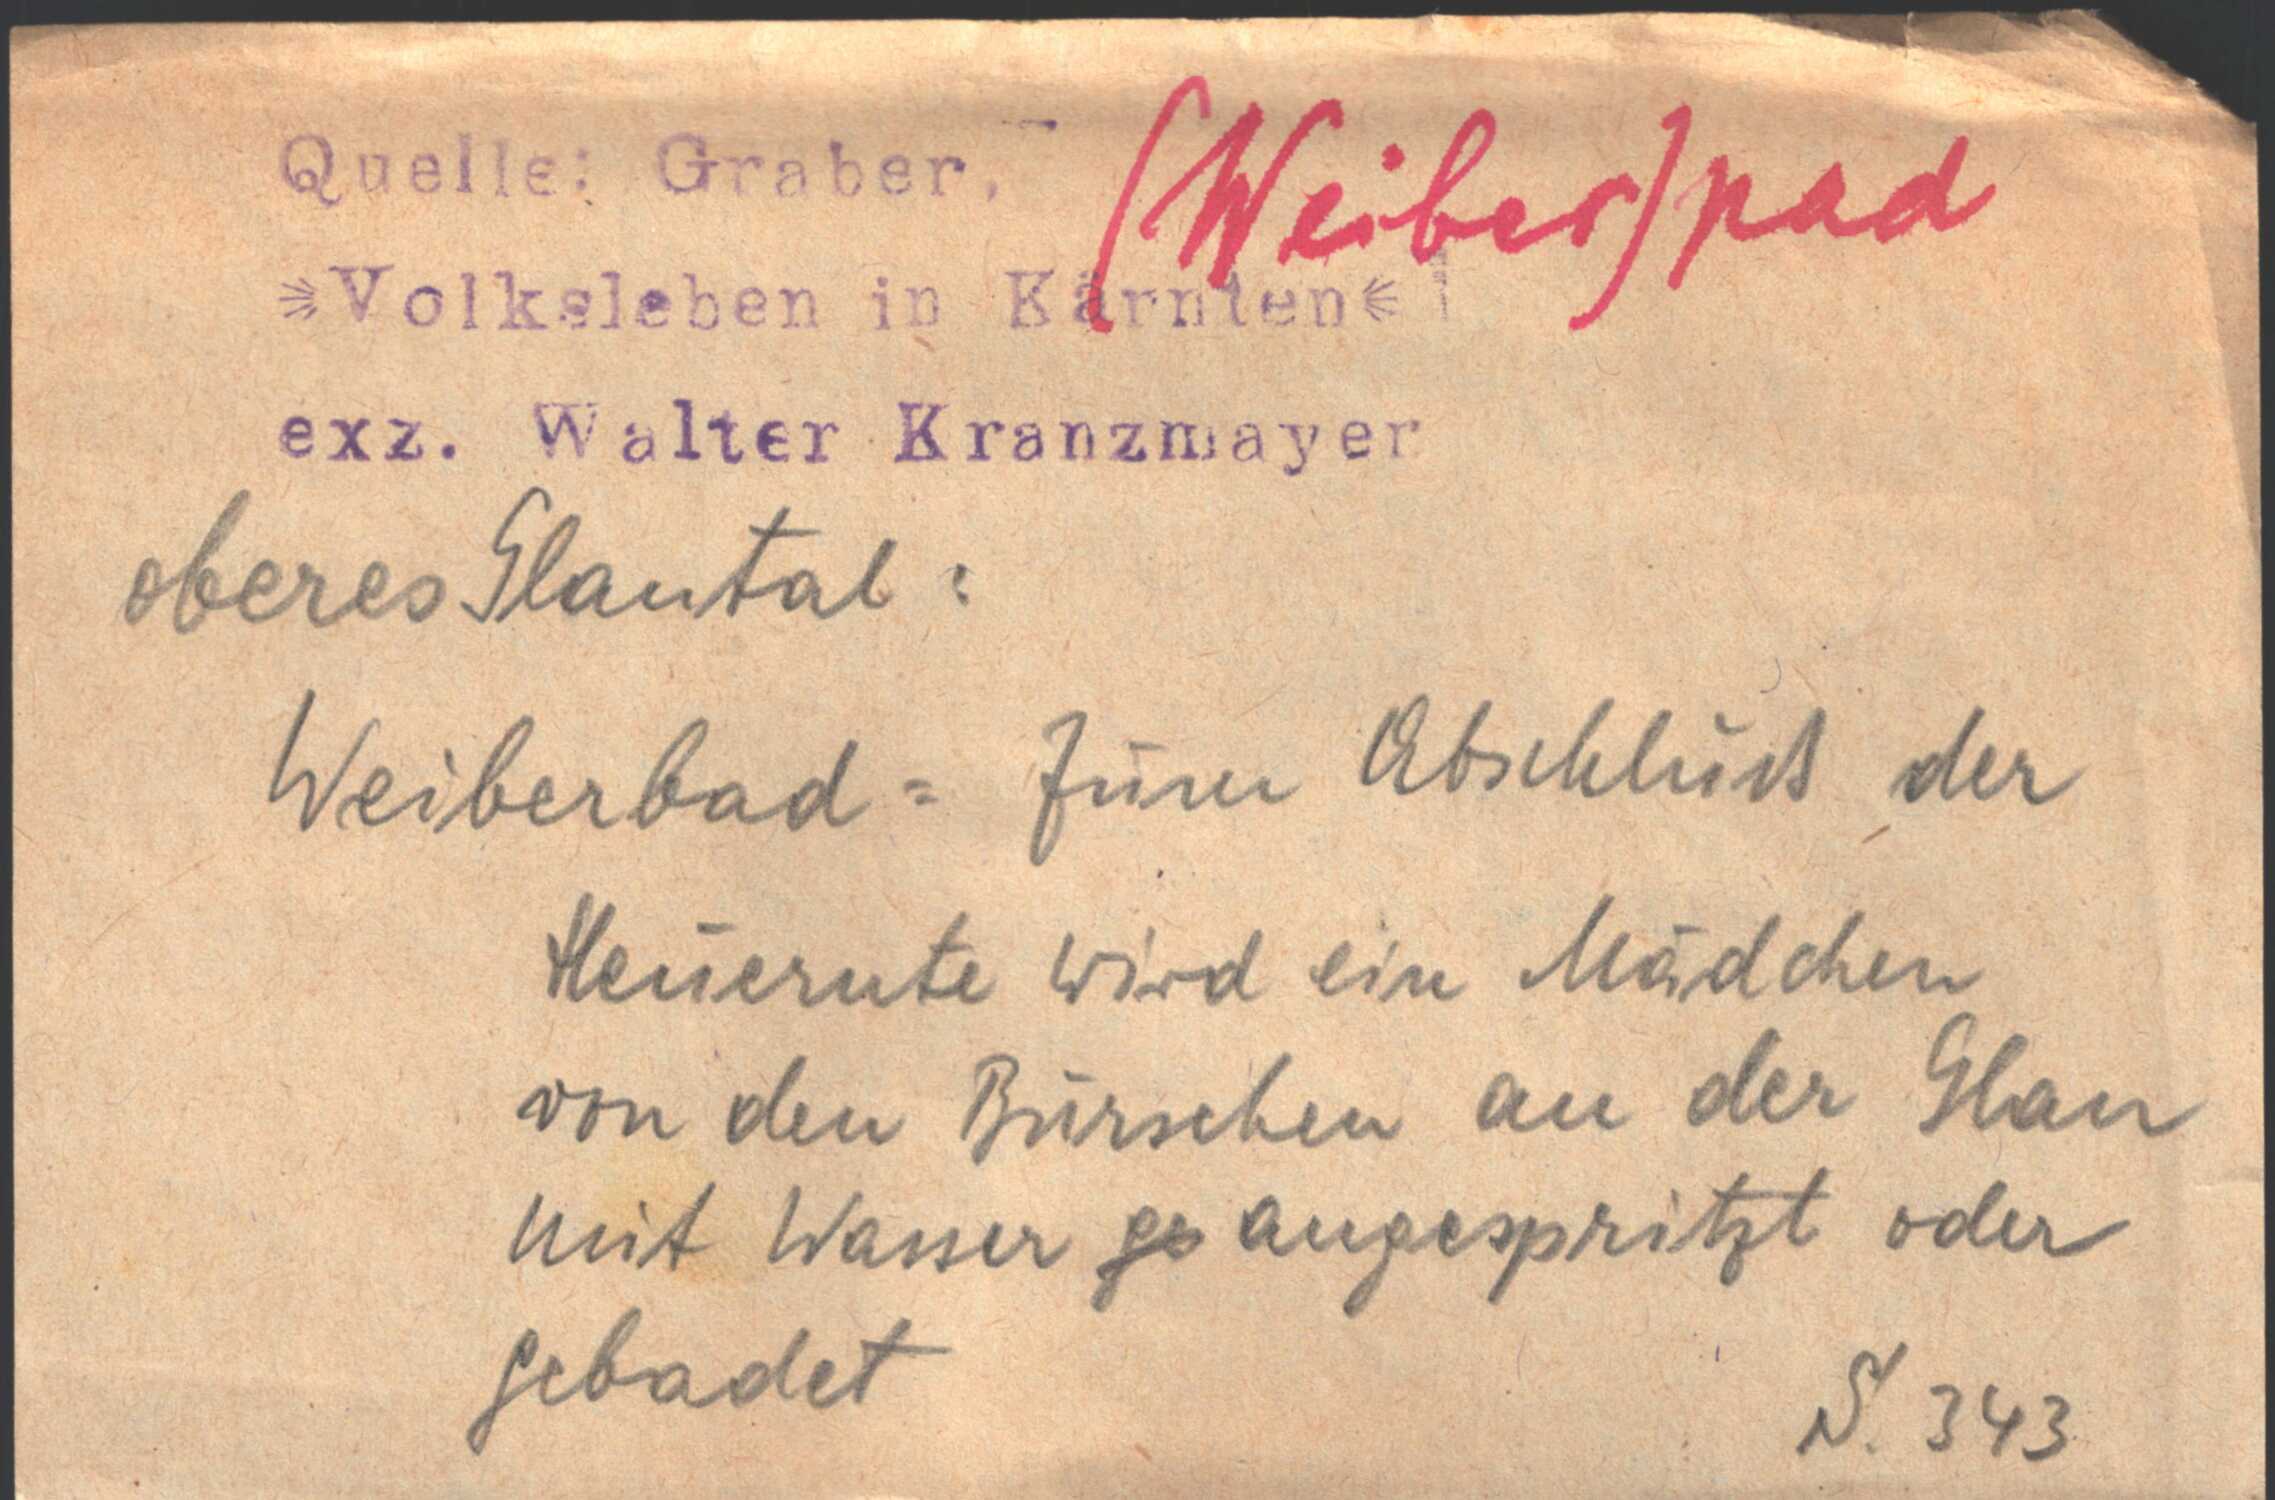 Quelle: Graber,
(Weiber)pad
»Volksleben in Kärnten«
exz. Walter Kranzmayer
oberes Glantal:
Weiberbad = Zum Abschluß der
Heuernte wird ein Mädchen
von den Burschen an der Glan
mit Wasser ge angespritzt oder
gebadet
S. 343